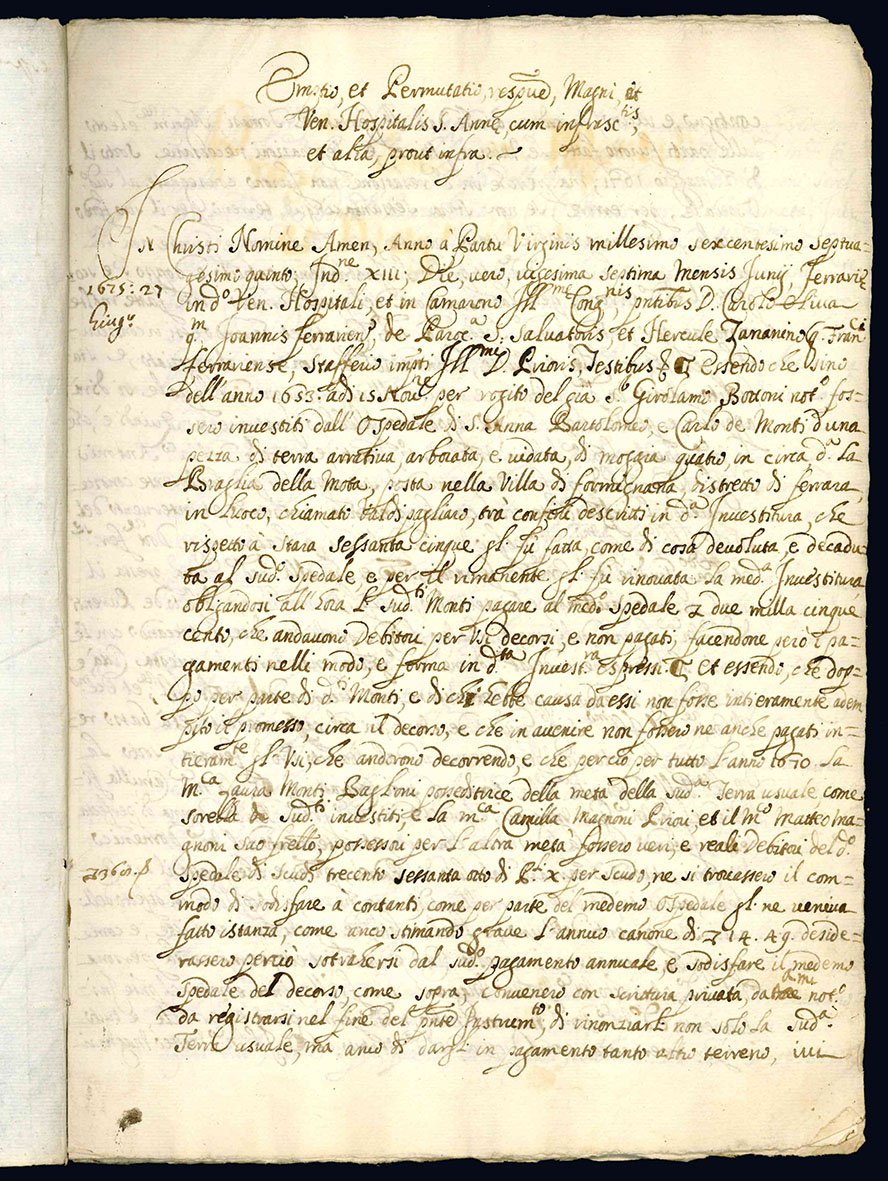 Emptio, et Permutatio, respue, Magni, et
Ven. Hospitalis S. Annę cum infrisc.tis;
et alia, prout infra.
IN Christi Nomine Amen, Anno à Partu Virginis millesimo sexcentesimo septua=
gesimo quinto, Ind.ne XIII; Die, vero, vigesima septima mensis Junij, Ferrarię
1675: 27
Giug.
in d.o Ven. Hospitali, et in Camarono Ill.me Cong.nis, pntibus D. Carolo Oliva
q.m Joannis ferrarien., de Paroc.a S. Salvatoris, et Hercule Zananino q. Fran.ci
ferrariense, Stafferio impti Ill.me D. Prioris, Testibus essendo che sino
dell'anno 1653: adi 15 Nov.re per rogito del già S.r Girolamo Bottoni not.o fos=
sero investiti dall'Ospedale di S. Anna Bartolomeo, e Carlo de Monti d'una
pezza di terra arrativa, arborata, e vidata, di moggia quatro, in circa d.a La
Braglia della Mota, posta nella Villa di formignana, distretto di ferrara,
in luoco, chiamato Valdi pagliaro, tra confini descritti in d.a Investitura, che
rispetto à stara sessanta cinque gl. fù fatta, come di cosa devoluta, e decadu=
ta al sud.o Spedale, e per il rimanente gl. fù rinovata la med.a Investitura
obligandosi all'hora li sud.ti Monti pagare al med.o Spedale due milla cinque
cento, che andavono Debitori per Usi decorsi, e non pagati, facendone però i pa=
gamenti nelli modo, e forma in d.ta Invest.ra espressi. et essendo, che dop=
po per parte di d.ti Monti, e di chi hebbe causa da essi non fosse intieramente adem
pito il promesso, circa il decorso, e che in avenire non fossero ne anche pagati in=
tieram.te gl. Usi, che anderono decorrendo, e che perciò per tutto l'anno 1670. La
M.ca Laura Monti Baglioni posseditrice della metà della sud.a Terra usuale come
sorella de sud.ti investiti, e la m.ca Camilla Magnoni Priori, et il m.o Matteo ma=
gnoni suo frello, possessori per l'altra metà fossero veri, e reali Debitori del d.o
368.
Spedale di scudi trecento sessanta otto di P.li X. per scudo, ne si trovassero il com=
modo di sodisfare à contanti, come per parte del medemo Ospedale gl. ne veniva
fatto istanza, come anco stimando grave l'annuo canone di 14. 49. deside=
rassero perciò sotrahersi dal sud.o pagamento annuale, e sodisfare il medemo
Spedale del decorso, come sopra, convenero con scrittura privata, not.o
da registrarsi nel fine del pnte Instrum.to, di rinonziarli non solo la sud.a
Terra usuale, ma anco di darli in pagamento tanto altro terreno, ivi